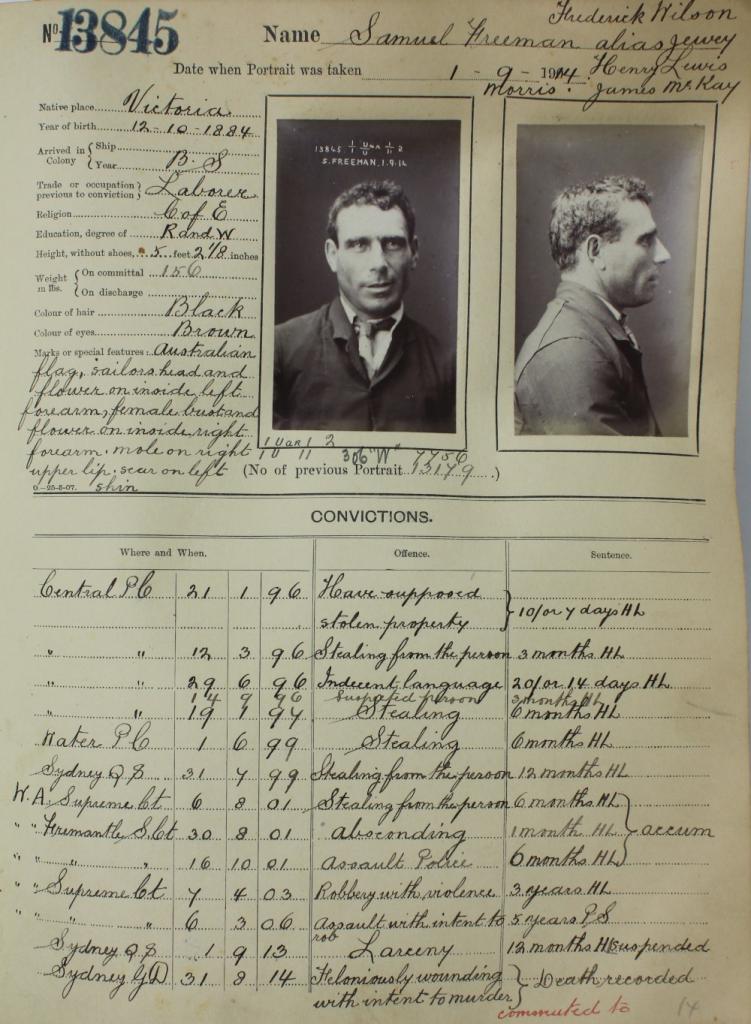 Frederick Wilson
No 13845 Name Samuel Freeman alias Jewey
Date when Portrait was taken 1 - 9 - 1914. Henry Lewis
Morris. James McKay
Native place Victoria
Year of birth 12-10-1884
Arrived in Colony { Ship
Year B.S
Trade or occupation previous to conviction } Laborer
Religion C of E
Education, degree of R and W
Height, without shoes, 5 feet 2 1/8 inches
Weight in lbs. { On committal 156
On discharge
Colour of hair Black
Colour of eyes Brown
Marks or special features: Australian
flag, sailors head and
flower on inside left
forearm, female bust and
flower on inside right
forearm. mole on right
upper lip. scar on left
shin
0-25-5-07.
13845 1 U AR 11 2
U 11
S. FREEMAN. 1.9.14
1 U AR 1 2
1 U 11
306 "W" 7756
(No of previous Portrait 13179 .)
CONVICTIONS.
Where and When. Offence. Sentence.
Central P C 21 1 96 Have supposed
stolen property } 10/ or 7 days HL
" " 12 3 96 Stealing from the person 3 months HL
" " 29 6 96 Indecent language 20/ or 14 days HL
14 9 96 Suspected person 3 months HL
" " 19 1 97 Stealing 6 months HL
Water P C 1 6 99 Stealing 6 months HL
Sydney Q S 31 7 99 Stealing from the person 12 months HL
W.A. Supreme Ct 6 8 01 Stealing from the person 6 months HL
" " Fremantle S Ct 30 8 01 absconding 1 month HL } accum
" " " 16 10 01 Assault Police 6 months HL
" " Supreme Ct 7 4 03 Robbery with violence 3 years HL
" " " 6 3 06 Assault with intent to rob 5 years P S
Sydney Q S 1 9 13 Larceny 12 months HL suspended
Sydney G D 31 8 14 Feloniously wounding
with intent to murder } Death recorded
commuted to 14